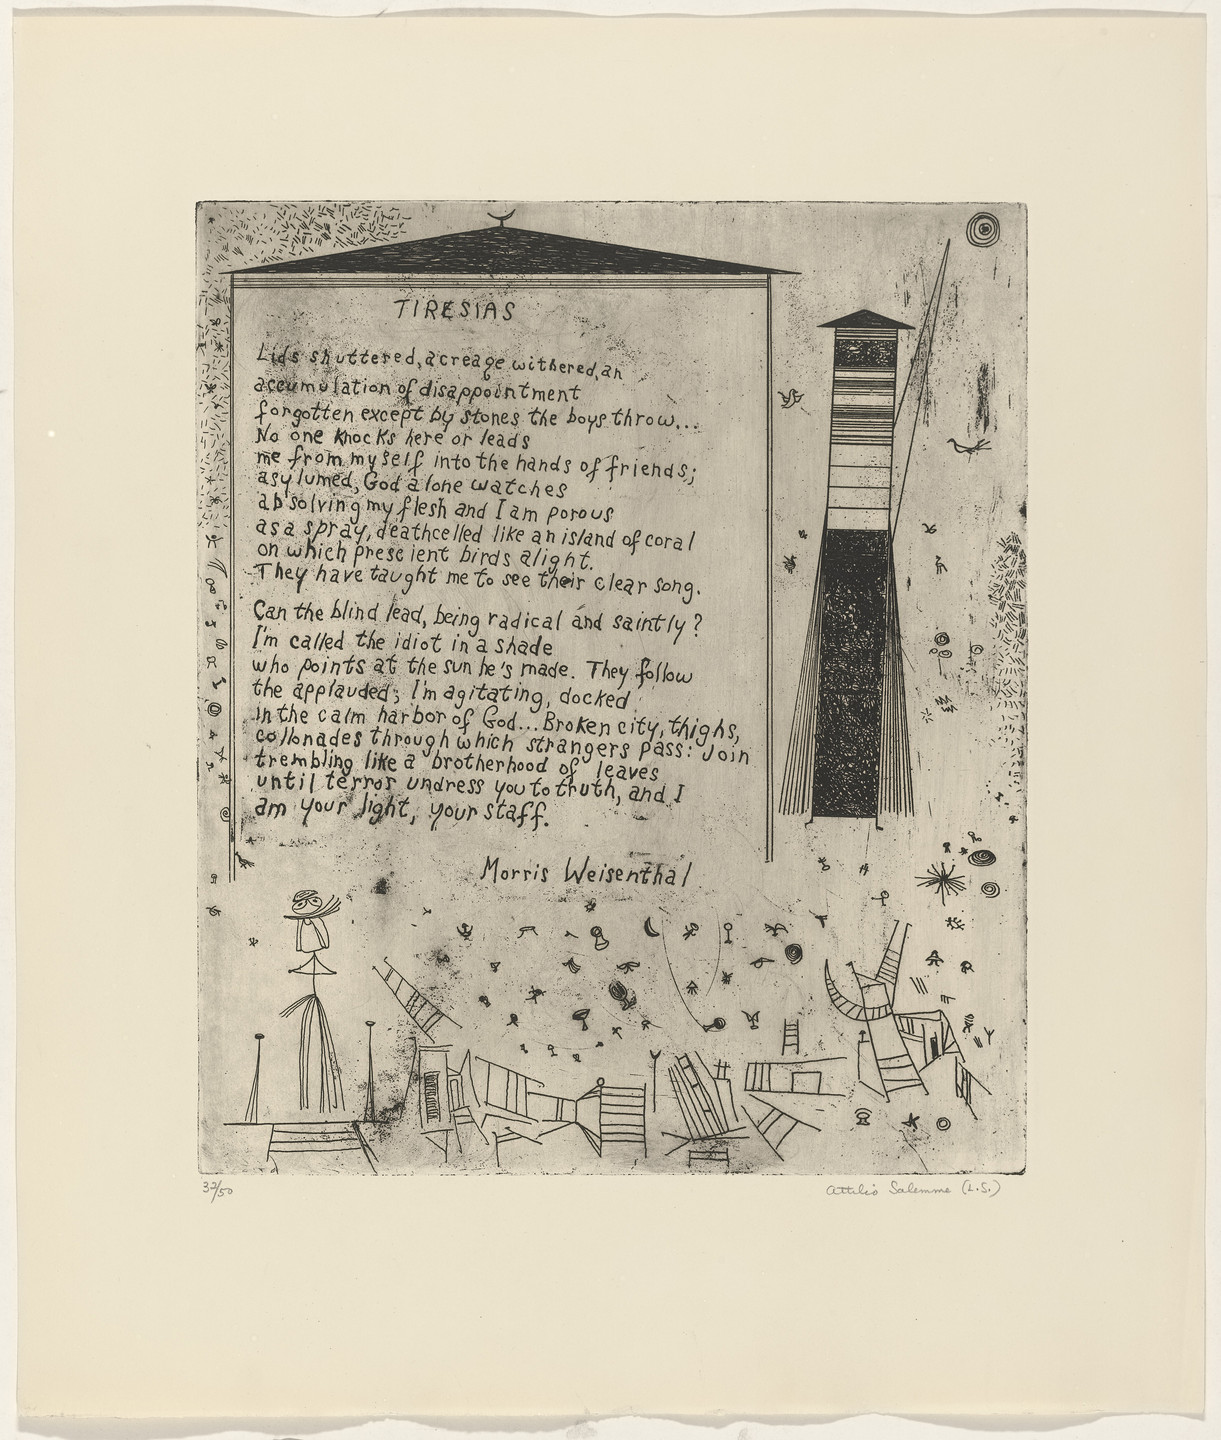 TIRESIAS
Lids shuttered, acreage withered, an
accumulation of disappointment
forgotten except by stones the boys throw...
No one knocks here or leads
me from myself into the hands of friends;
asylumed, God alone watches
absolving my flesh and I am porous
as a spray, deathcelled like an island of coral
on which prescient birds alight.
They have taught me to see their clear song.
Can the blind lead, being radical and saintly?
I'm called the idiot in a shade
who points at the sun he's made. They follow
the applauded; I'm agitating, docked
in the calm harbor of God... Broken city, thighs,
collonades through which strangers pass: Join
trembling like a brotherhood of leaves
until terror undress you to truth, and I
am your light, your staff.
Morris Weisenthal
32/50
Attilio Salemme (L.S.)